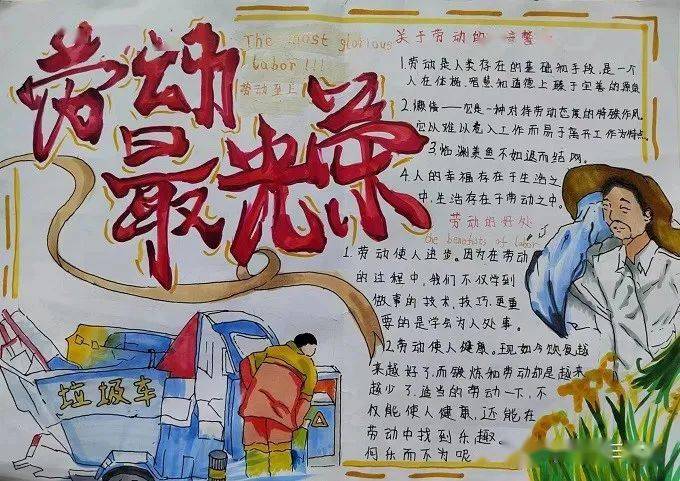 劳动
最光荣
The most glorious
labor!!!
劳动至上
关于劳动的
1.劳动是人类存在的基础和手段,是一个
人在体格、智慧和道德上臻于完善的源泉
2.懒惰——它是一种对待劳动态度的特殊作风。
它以难以卷入工作而易于离开工作为特点。
3.临渊羡鱼不如退而结网。
4.人的幸福存在于生活之
中,生活存在于劳动之中。
劳动的好处
the benefists of labor
1.劳动使人进步。因为在劳动
的过程中,我们不仅学到
做事的技术、技巧,更重
要的是学会为人处事。
2.劳动使人健康。现如今饮食越
来越好了,而锻炼和劳动却是越来
越少了。适当的劳动一下,不
仅能使人健康,还能在
劳动中找到乐趣。
何乐而不为呢
垃圾车